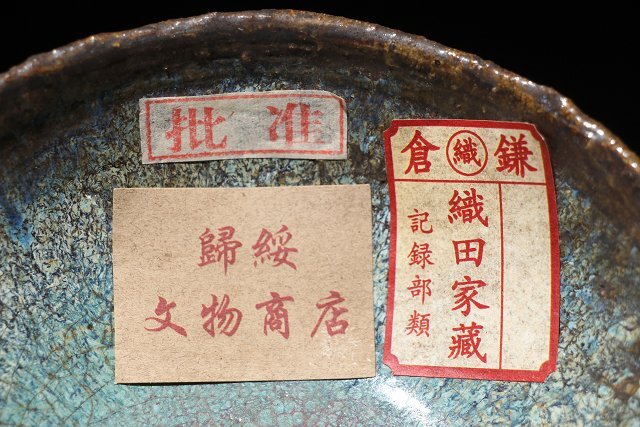 批准
歸綏
文物商店
鎌織倉
織田家藏
記録部類